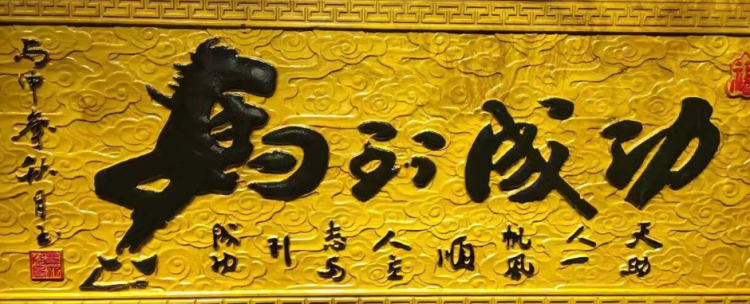 馬到成功
天助人一帆风顺人立志马到成功
丙申年秋月